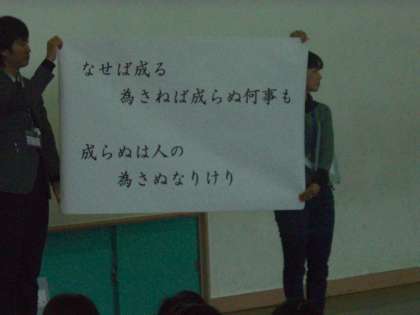 なせば成る
為さねば成らぬ何事も
成らぬは人の
為さぬなりけり